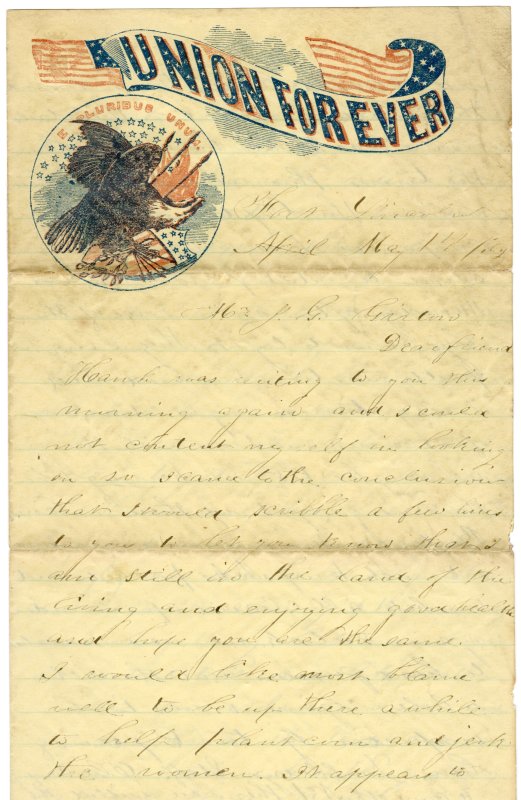 UNION FOR EVER
E PLURIBUS UNUM.
Fort
April May 1st
Mr J. G.
Dear friend
Hank was writing to you this
morning again and I could
not content my self in looking
on so I came to the conclusion
that I would scribble a few lines
to you to let you know that I
am still in the land of the
living and enjoying good health
and hope you are the same.
I would like most blame
well to be up there a while
to help plant corn and jerk
the women. It appears to